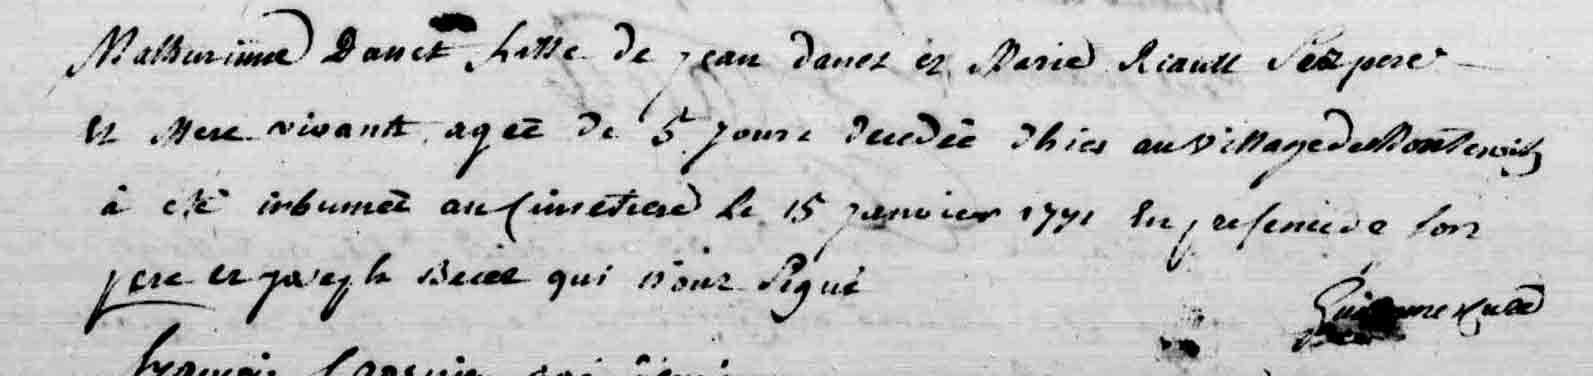 Mathurinne Danet fille de jean danet et Marie Riault Ses pere
et Mere vivantt agéé de 5 jours decedéé dhier au village de
à été inhuméé au Cimetiere le 15 janvier 1771 En presence de son
pere et joseph qui n'ont Signé
Guillaume
françois